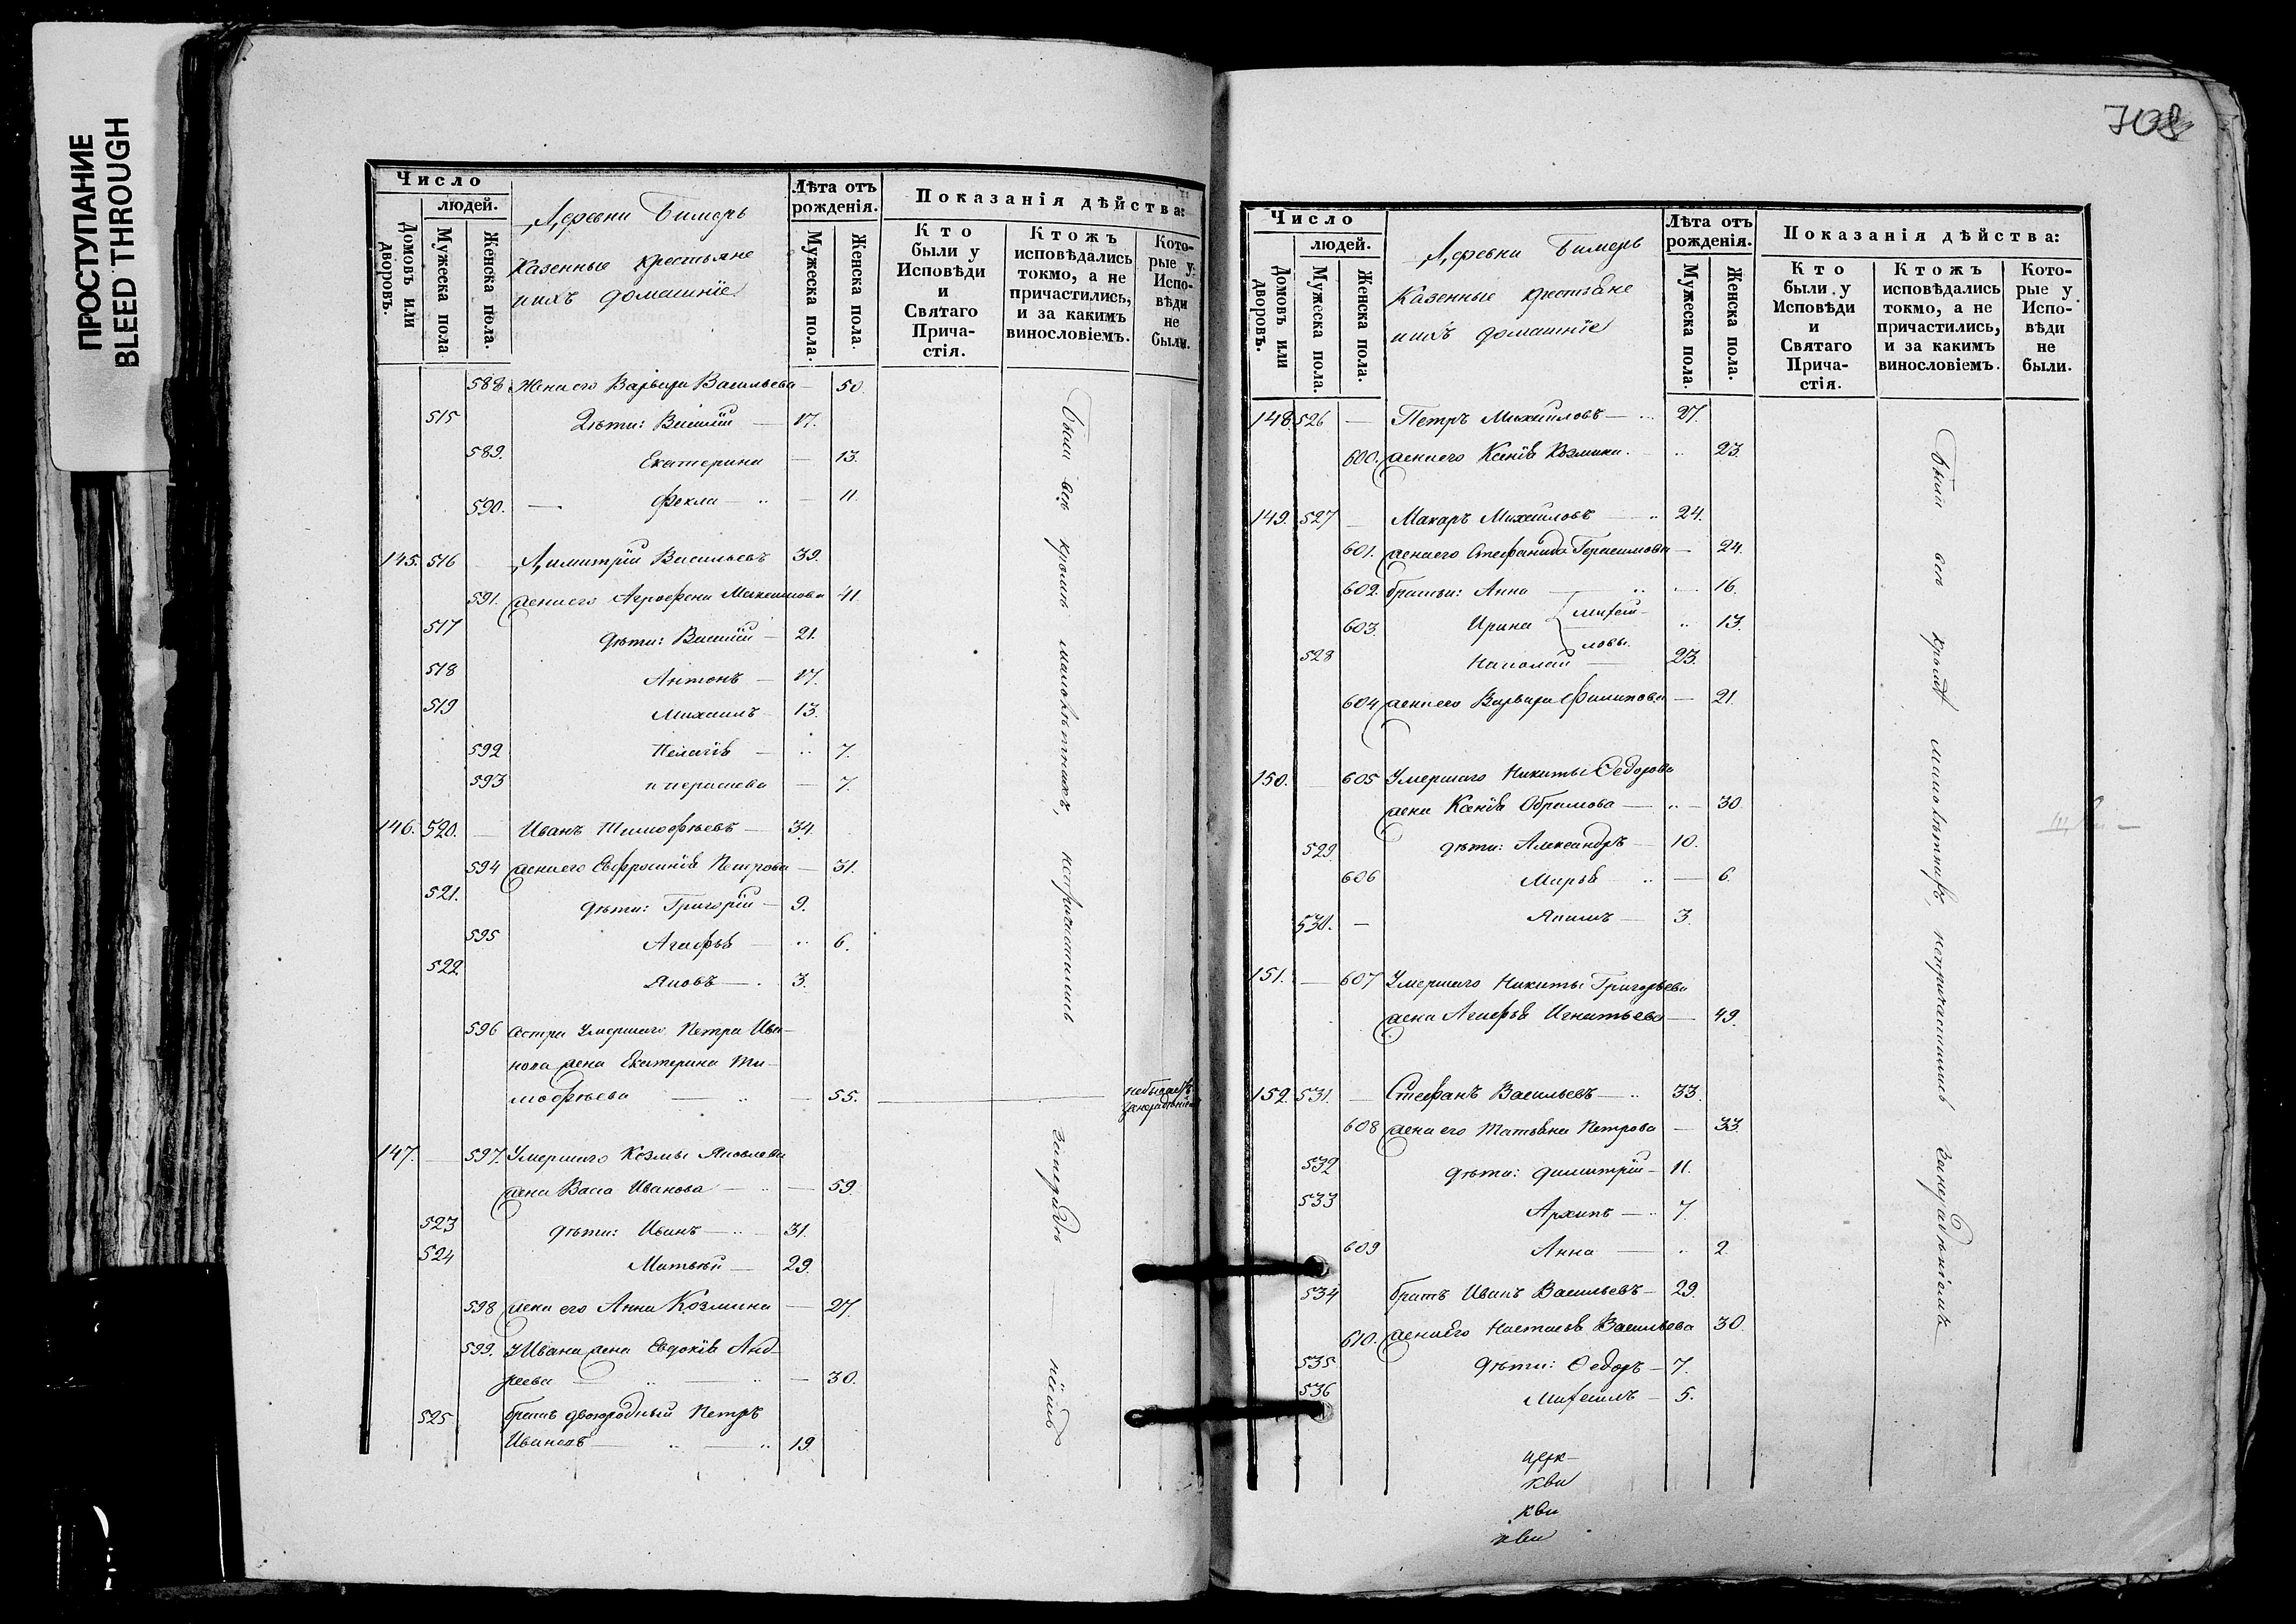 ПРОСТУПАНИЕ
BLEED THROUGH
Число
людей.
Домовъ или дворовъ.
Мужеска пола
Женска пола.
Деревни Бимерь
Казенные крестьяне
и ихъ домашніе
Лѣта отъ рожденія.
Мужеска пола.
Женска пола.
Показанія дѣйства:
Кто были у Исповѣди и Святаго Причастія.
Ктожъ исповѣдались токмо, а не причастились, и за какимъ винословіемъ.
Которые у Исповѣди не были.
588 Жена его Варвара Васильева — 50.
515 Дѣти: Василій — 17.
589. Екатерина — 13.
590. — Фекла — — 11.
145. 516 Димитрій Васильевъ 39.
591. жена его Агрофена Максимова 41.
517 дѣти: Василій — 21.
518 Антонъ — 17.
519 Михаилъ 13.
592 Пелагія — 7.
593 и Параскева — 7.
146. 520. — Иванъ Тимофѣевъ — 34.
594 жена его Евфросинія Петрова — 31.
521. дѣти: Григорій — 9.
595 Агафья — 6.
522 Яковъ — 3.
596 сестра Умершаго Петра Ива-
нова жена Екатерина Ти-
мофѣева — — 55.
147. — 597. Умершаго Козмы Яковлева
жена Васса Иванова — — 59.
523 дѣти: Иванъ — 31.
524 Матвѣй — 29.
598 жена его Анна Козмина — 27.
599. У Ивана жена Евдокія Анд-
реева — — — 30.
525 братъ двоюродный Петръ
Ивановъ — — 19.
Были всѣ кромѣ малолѣтныхъ, непричастились
708
Число
людей.
Домовъ или дворовъ.
Мужеска пола.
Женска пола.
Деревни Бимерь
Казенные крестьяне
и ихъ домашніе
Лѣта отъ рожденія.
Мужеска пола.
Женска пола.
Показанія дѣйства:
Кто были у Исповѣди и Святаго Причастія.
Ктожъ исповѣдались токмо, а не причастились, и за какимъ винословіемъ.
Которые у Исповѣди не были.
148. 526 — Петръ Михайловъ — 27.
600. жена его Ксенія Козмина. 23.
149. 527 — Макаръ Михайловъ — 24.
601. жена его Стефанида Герасимова — 24.
602. братьи: Анна — — 16.
603. Ирина Михай- 13.
ловы.
528 Николай — 23.
604 жена его Варвара Филипова — 21.
150. — 605 Умершаго Никиты Ѳедорова
жена Ксенія Обрамова — — 30.
529. дѣти: Александръ — 10.
606 Марья — 6.
530. — Якимъ — 3.
151. — 607 Умершаго Никиты Григорьева
жена Агафья Игнатьева — 49.
152. 531. — Стефанъ Васильевъ — 33.
608 жена его Татьяна Петрова — 33.
532 дѣти: Димитрій — 11.
533 Архипъ — 7.
609 Анна — 2.
534 братъ Иванъ Васильевъ — 29.
610. жена его Настасья Васильева 30.
535. дѣти: Ѳедоръ — 7.
536 Михаилъ — 5.
Были всѣ кромѣ малолѣтныхъ, непричастились занерадѣніемъ
церк-
кви
кви
кви